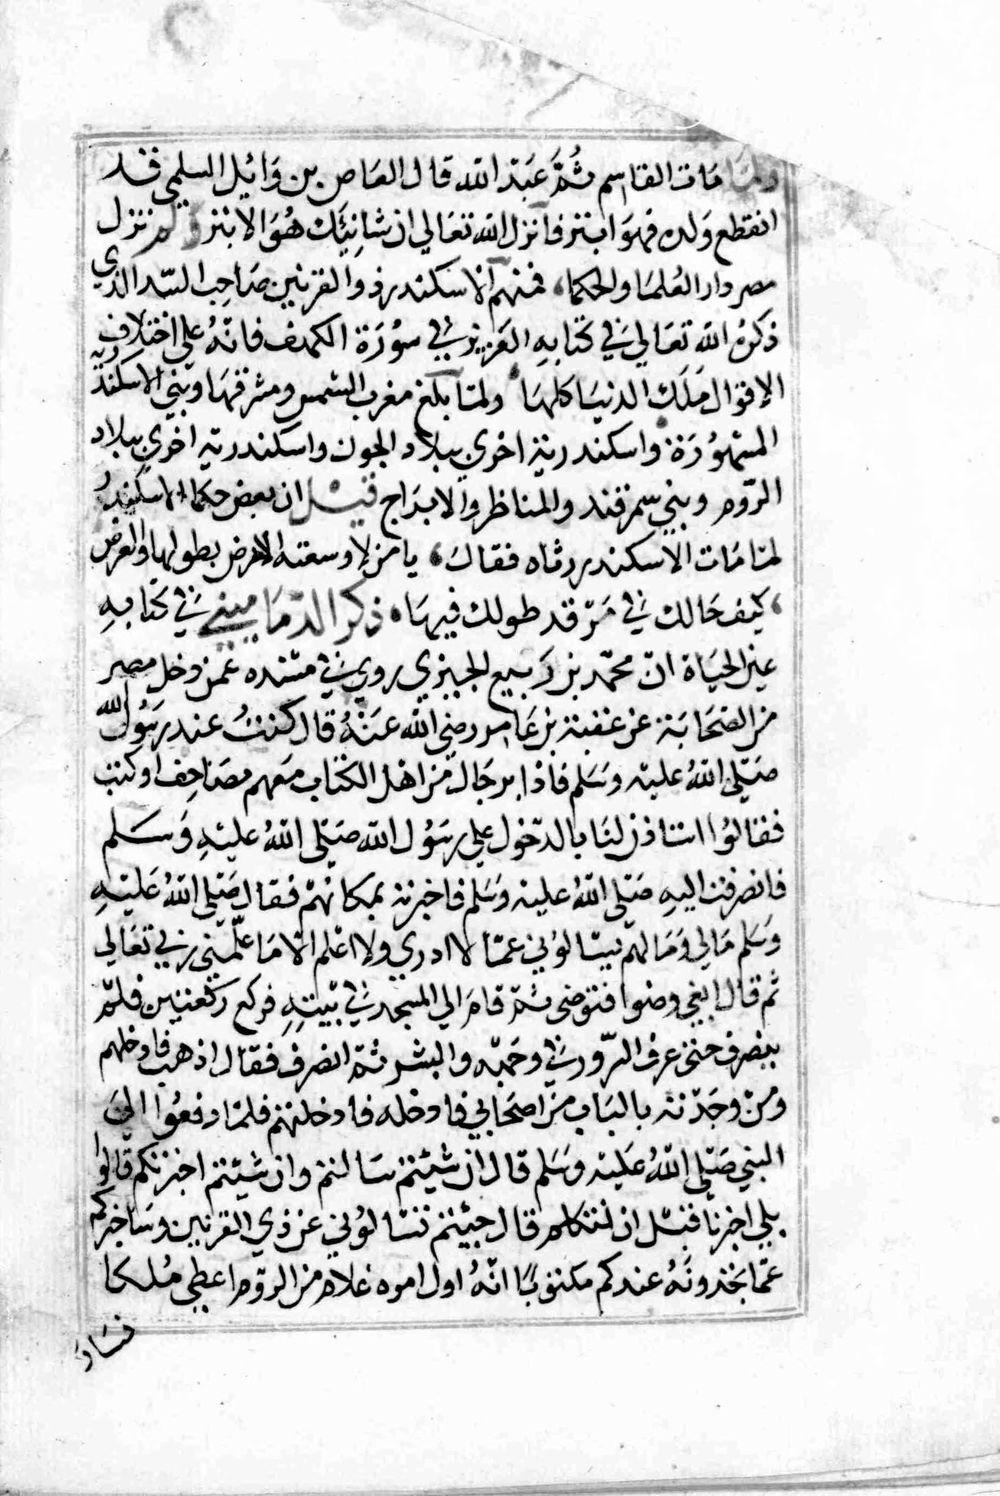 ولما مات القاسم ثم عبد الله قال العاص بن وائل السلمي قد
انقطع ولده فهو ابتر فانزل الله تعالي ان شانئك هو الابتر ولم تزل
مصر دار العلما والحكما، فمنهم الاسكندر ذو القرنين صاحب السد الذي
ذكره الله تعالي في كتابه العزيز في سورة الكهف فانه علي اختلاف
الاقوال ملك الدنيا كلها ولما بلغ مغرب الشمس ومشرقها وبني الاسكندرية
المشهورة واسكندرية اخري ببلاد الجون واسكندرية اخري ببلاد
الروم وبني سمرقند والمناظر والابراج قيل ان بعض حكما الاسكندر
لما مات الاسكندر رثاه فقال، يا من لا وسعته الارض بطولها والعرض
، كيف حالك في مرقد طولك فيها، ذكر الدماميني في كتابه
عين الحياة ان محمد بن ربيع الجيزي روي في مسنده عمن دخل مصر
من الصحابة عن عقبة بن عامر رضي الله عنه قال كنت عند رسول الله
صلي الله عليه وسلم فاذا برجال من اهل الكتاب معهم مصاحف او كتب
فقالوا استاذن لنا بالدخول علي رسول الله صلي الله عليه وسلم
فانصرفت اليه صلي الله عليه وسلم فاخبرته بمكانهم فقال صلي الله عليه
وسلم مالي ومالهم يسالوني عما لا ادري ولا اعلم الا ما علمني ربي تعالي
ثم قال ابغي وضوا فتوضي ثم قام الي المسجد في بيته فركع ركعتين فلم
ينصرف حتي عرف السرور في وجهه والبشر ثم انصرف فقال اذهب فادخلهم
ومن وجدته بالباب من اصحابي فادخله فادخلتهم فلما دفعوا الي
النبي صلي الله عليه وسلم قال ان شئتم سالتم وان شئتم اخبرتكم قالوا
بلي اخبرنا قبل ان نتكلم قال جئتم تسالوني عن ذي القرنين وساخبركم
عما تجدونه عندكم مكتوبا انه اول امره غلام من الروم اعطي ملكا
فسار